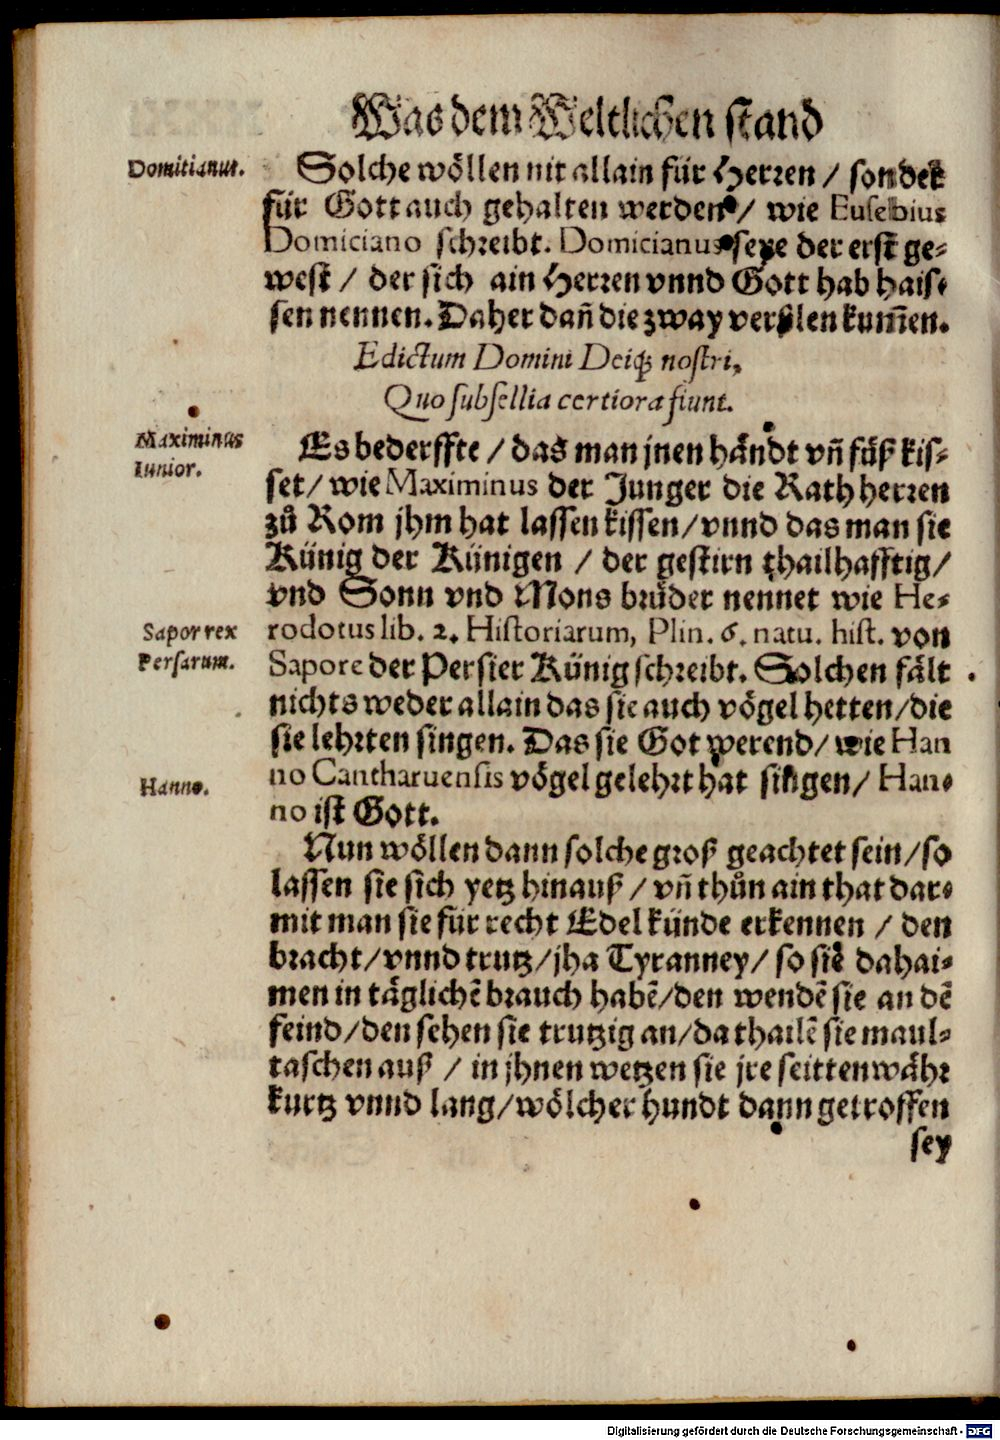 Was dem Weltlichen stand
Domitianus.
Solche wöllen nit allain für Herren / sonder
für Gott auch gehalten werden / wie Eusebius
Domiciano schreibt. Domicianus seye der erst ge-
west / der sich ain Herren vnnd Gott hab hais-
sen nennen. Daher dañ die zway verßlen kum̃en.
Edictum Domini Deiq́; nostri,
Quo subsellia certiora fiunt.
Maximinus
Iunior.
Es bederffte / das man jnen händt vñ füß kis-
set / wie Maximinus der Junger die Rathherren
zů Rom jhm hat lassen kissen / vnnd das man sie
Künig der Künigen / der gestirn thailhafftig /
vnd Sonn vnd Mons brüder nennet wie He-
Sapor rex
Persarum.
rodotus lib. 2. Historiarum, Plin. 6. natu. hist. von
Sapore der Persier Künig schreibt. Solchen fält
nichts weder allain das sie auch vögel hetten / die
sie lehrten singen. Das sie Got werend / wie Han
Hanno.
no Cantharuensis vögel gelehrt hat singen / Han-
no ist Gott.
Nun wöllen dann solche groß geachtet sein / so
lassen sie sich yetz hinauß / vñ thůn ain that dar-
mit man sie für recht Edel künde erkennen / den
bracht / vnnd trutz / jha Tyranney / so sie dahai-
men in täglichẽ brauch habẽ / den wendẽ sie an dẽ
feind / den sehen sie trutzig an / da thailẽ sie maul-
taschen auß / in jhnen wetzen sie jre seittenwähr
kurtz vnnd lang / wölcher hundt dann getroffen
sey
Digitalisierung gefördert durch die Deutsche Forschungsgemeinschaft - DFG